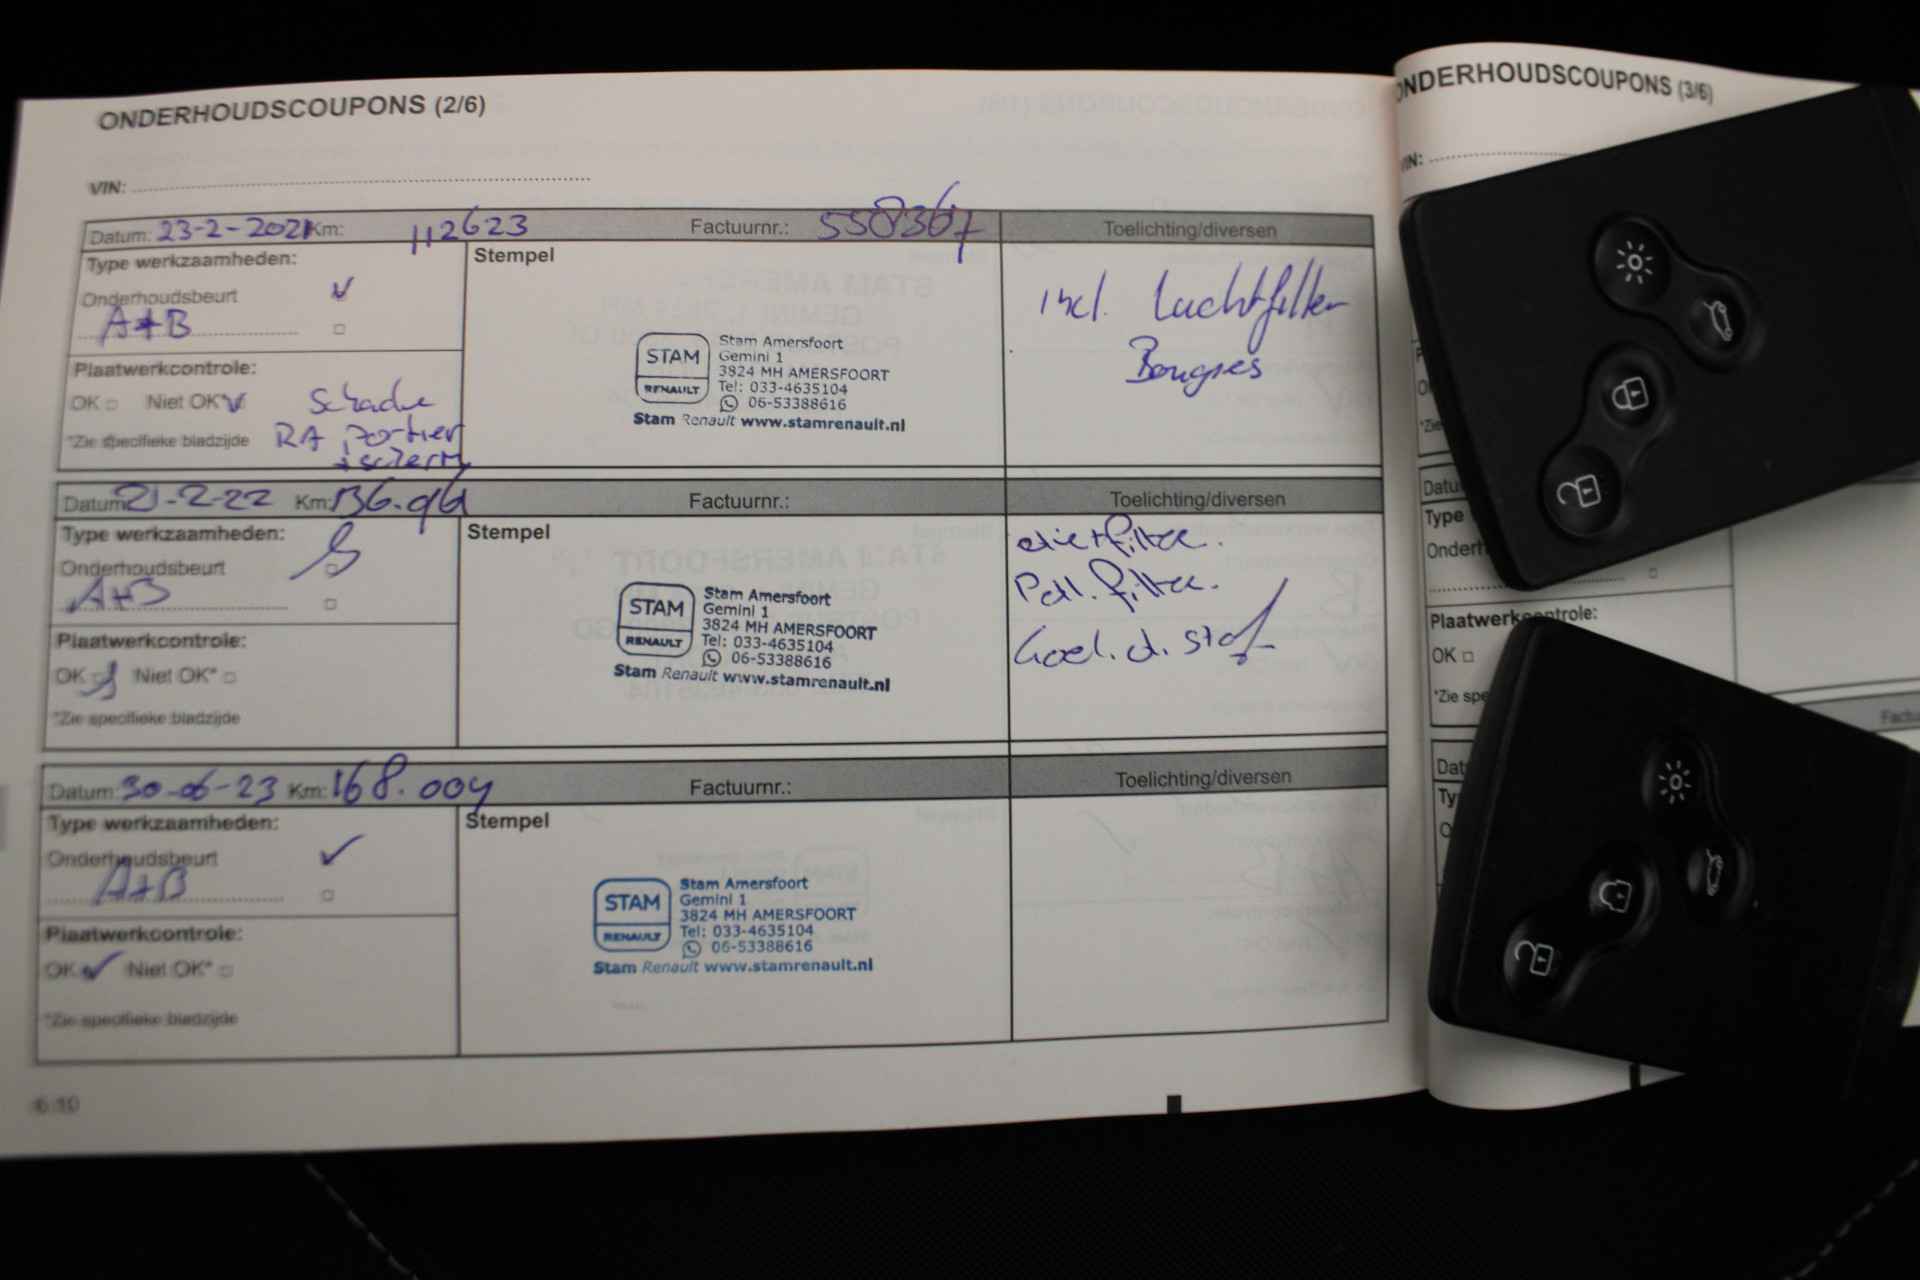 ONDERHOUDSCOUPONS (2/6)
VIN:
Datum: 23-2-2021 Km: 112623 Factuurnr.: 558367 Toelichting/diversen
Type werkzaamheden:
Stempel
Onderhoudsbeurt
A+B
incl. Luchtfilter
Bougies
Plaatwerkcontrole:
OK Niet OK* Schade
*Zie specifieke bladzijde RA portier
+ scherm
STAM
RENAULT
Stam Amersfoort
Gemini 1
3824 MH AMERSFOORT
Tel: 033-4635104
06-53388616
Stam Renault www.stamrenault.nl
Datum: 21-2-22 Km: Factuurnr.: Toelichting/diversen
Type werkzaamheden:
Stempel
Onderhoudsbeurt
A+B
Poll. filter.
Plaatwerkcontrole:
OK Niet OK*
*Zie specifieke bladzijde
STAM
RENAULT
Stam Amersfoort
Gemini 1
3824 MH AMERSFOORT
Tel: 033-4635104
06-53388616
Stam Renault www.stamrenault.nl
Datum: 30-06-23 Km: 168.004 Factuurnr.: Toelichting/diversen
Type werkzaamheden:
Stempel
Onderhoudsbeurt
A+B
Plaatwerkcontrole:
OK Niet OK*
*Zie specifieke bladzijde
STAM
RENAULT
Stam Amersfoort
Gemini 1
3824 MH AMERSFOORT
Tel: 033-4635104
06-53388616
Stam Renault www.stamrenault.nl
6.10
ONDERHOUDSCOUPONS (3/6)
VIN:
Type
Plaatwerkcontrole:
OK
*Zie